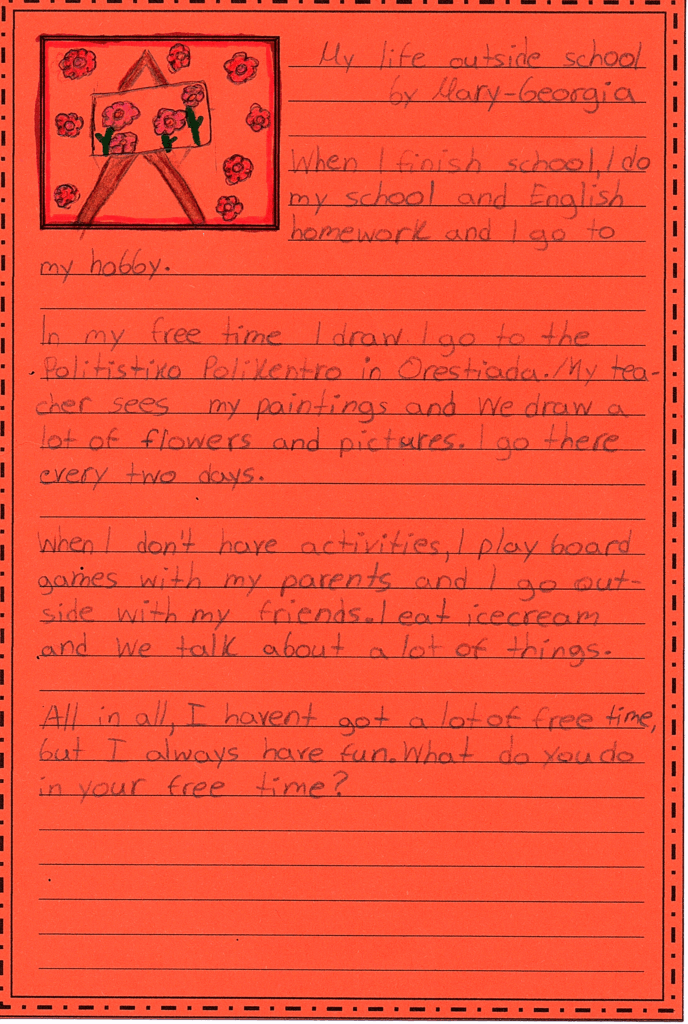 My life outside school
by Mary-Georgia
When I finish school, I do
my school and English
homework and I go to
my hobby.
In my free time I draw. I go to the
Politistiko Polikentro in Orestiada. My tea-
cher sees my paintings and We draw a
lot of flowers and pictures. I go there
every two days.
When I don't have activities, I play board
games with my parents and I go out-
side with my friends. I eat icecream
and We talk about a lot of things.
All in all, I havent got a lot of free time,
but I always have fun. What do you do
in your free time?